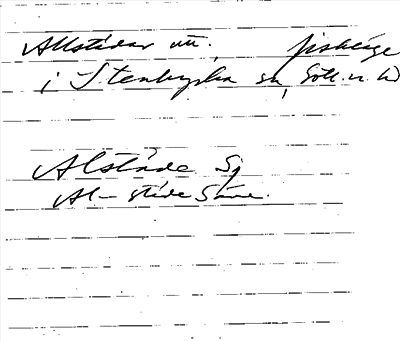 Allstädar utt. fiskläge
i Stenkyrka sn, Gotl. n. hd
Alstäde Sj
Al- städe Säve.